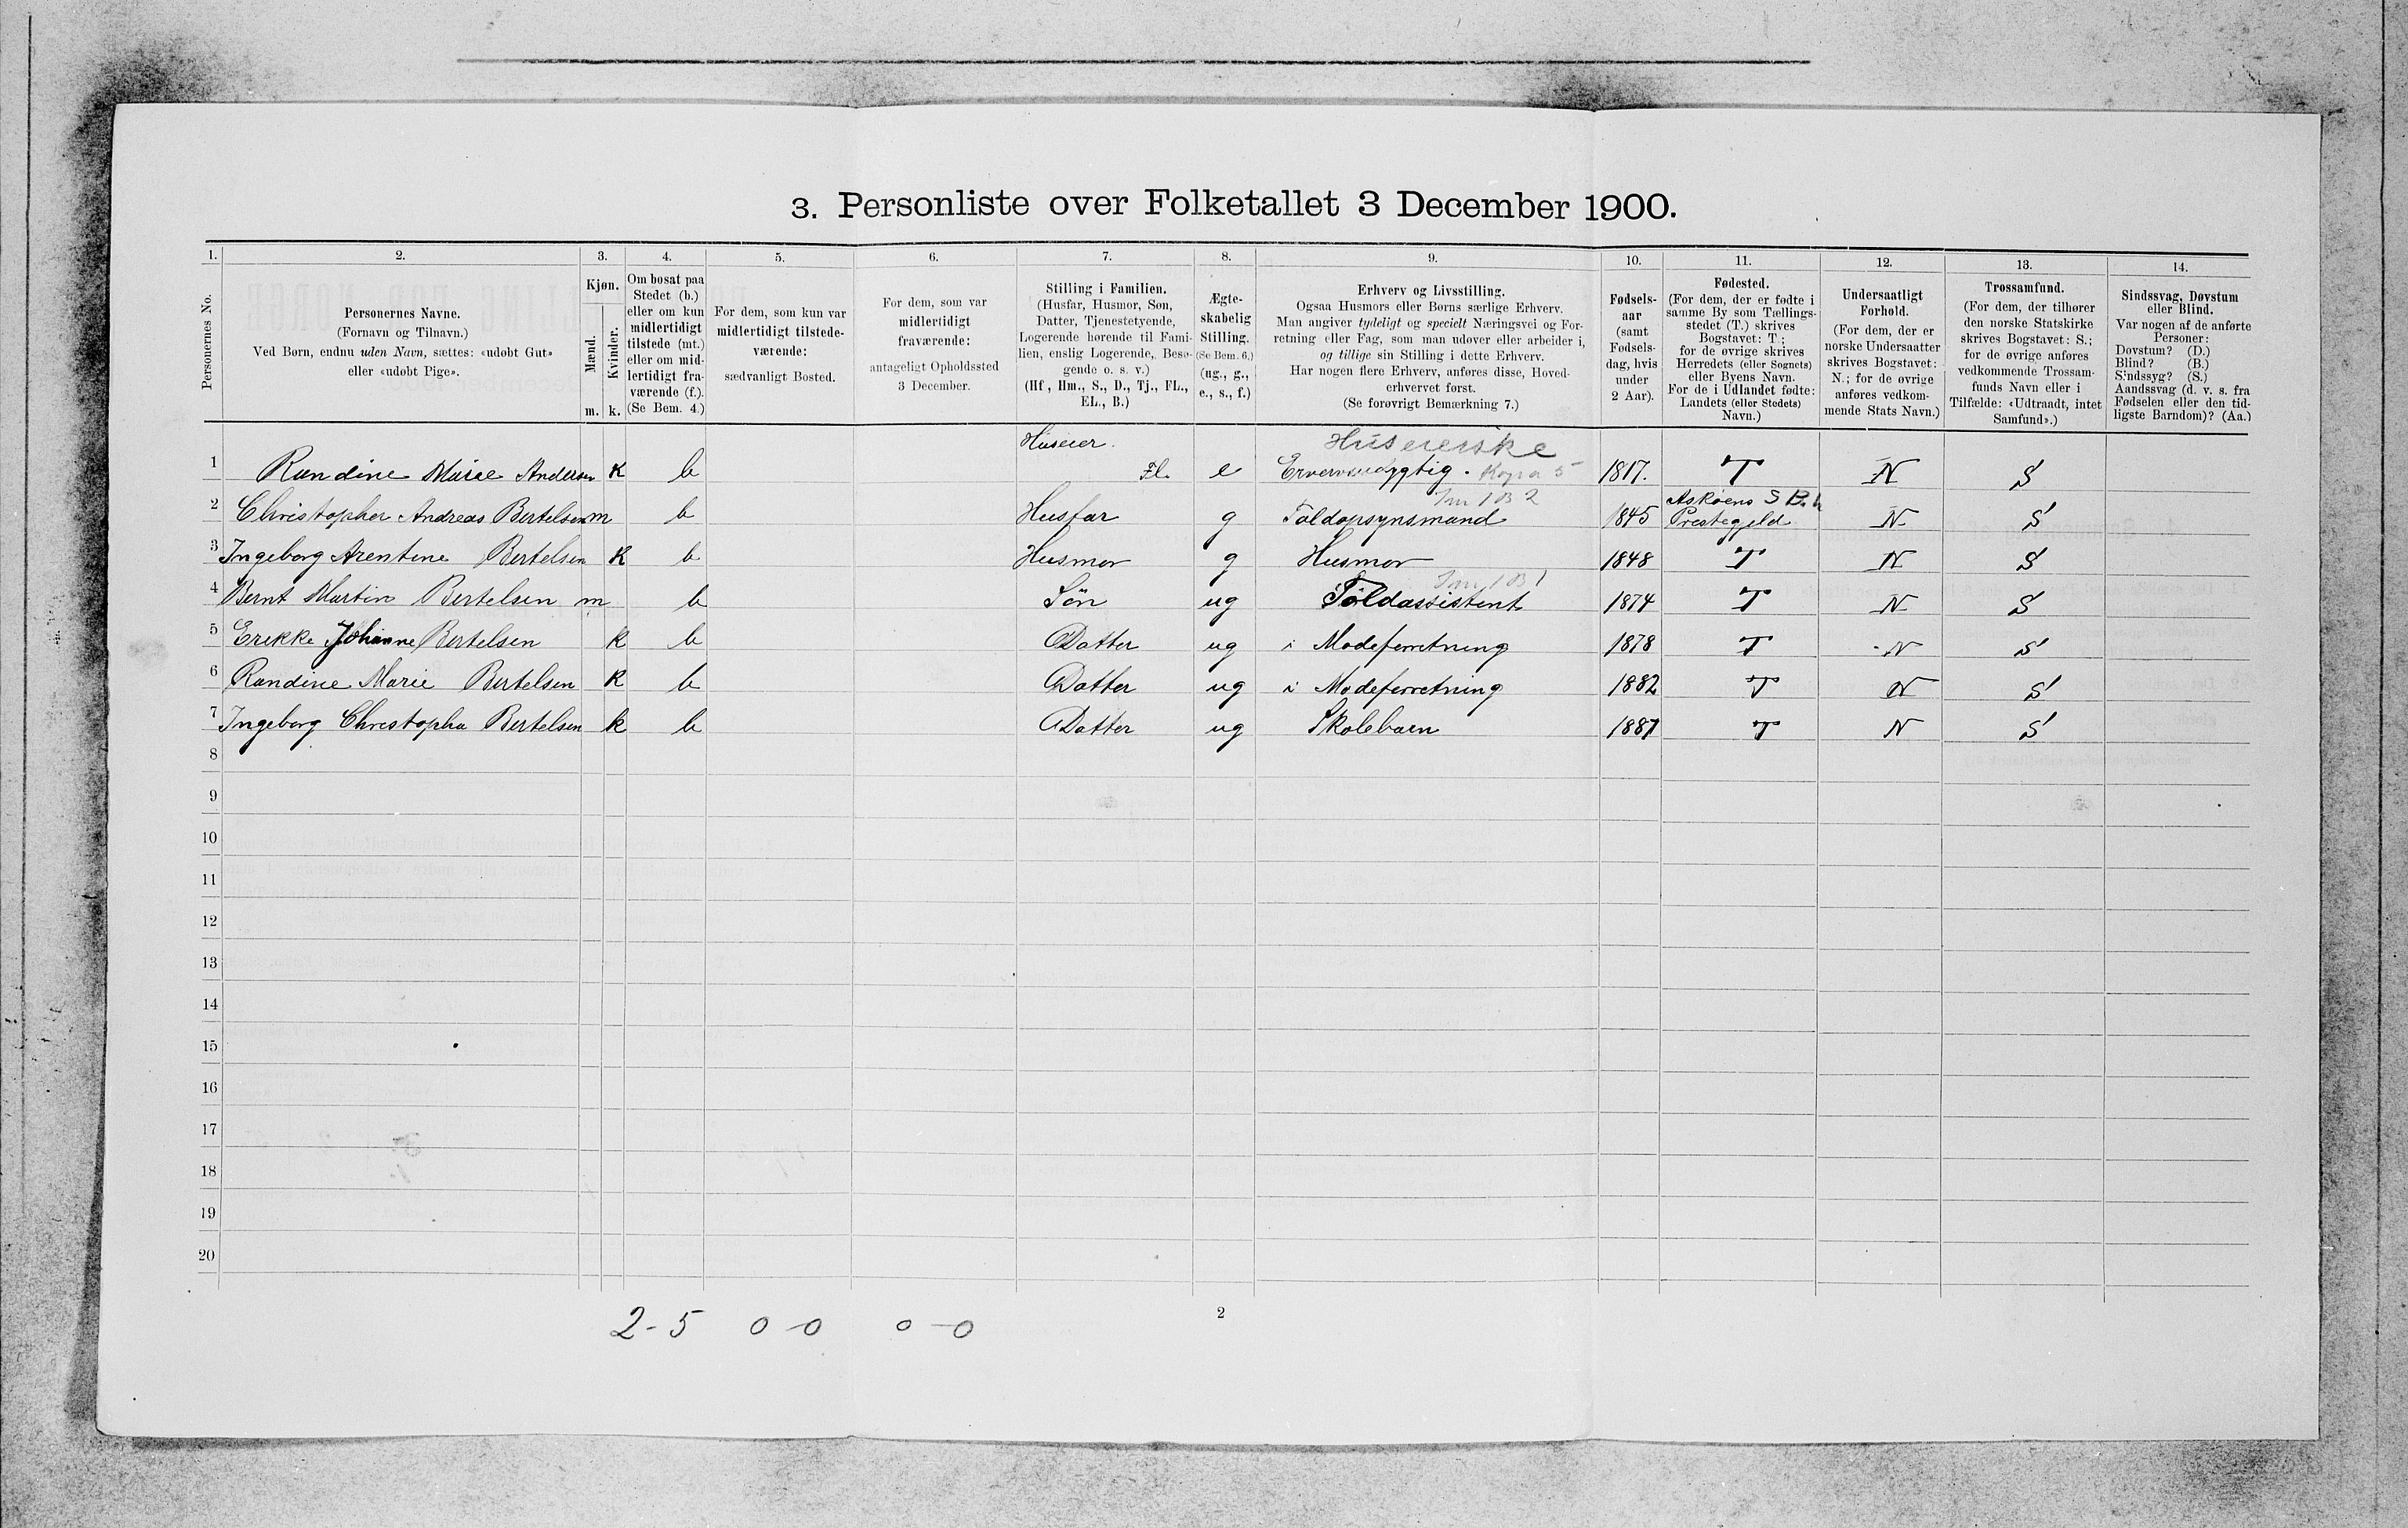 3. Personliste over Folketallet 3 December 1900.
1. 2. 3. 4. 5. 6. 7. 8. 9. 10. 11. 12. 13. 14.
Personernes No.
Personernes Navne.
(Fornavn og Tilnavn.)
Ved Børn, endnu uden Navn, sættes: «udøbt Gut»
eller «udøbt Pige».
Kjøn.
Mænd.
Kvinder.
m. k.
Om bosat paa
Stedet (b.)
eller om kun
midlertidigt
tilstede (mt.)
eller om mid-
lertidigt fra-
værende (f.).
(Se Bem. 4.)
For dem, som kun var
midlertidigt tilstede-
værende:
sædvanligt Bosted.
For dem, som var
midlertidigt
fraværende:
antageligt Opholdssted
3 December.
Stilling i Familien.
(Husfar, Husmor, Søn,
Datter, Tjenestetyende,
Logerende hørende til Fami-
lien, enslig Logerende, Besø-
gende o. s. v.)
(Hf., Hm., S., D., Tj., FL.,
EL., B.)
Ægte-
skabelig
Stilling.
(Se Bem. 6.)
(ug., g.,
e., s., f.)
Erhverv og Livsstilling.
Ogsaa Husmors eller Børns særlige Erhverv.
Man angiver tydeligt og specielt Næringsvei og For-
retning eller Fag, som man udøver eller arbeider i,
og tillige sin Stilling i dette Erhverv.
Har nogen flere Erhverv, anføres disse, Hoved-
erhvervet først.
(Se forøvrigt Bemærkning 7.)
Fødsels-
aar
(samt
Fødsels-
dag, hvis
under
2 Aar).
Fødested.
(For dem, der er fødte i
samme By som Tællings-
stedet (T.) skrives
Bogstavet: T.;
for de øvrige skrives
Herredets (eller Sognets)
eller Byens Navn.
For de i Udlandet fødte:
Landets (eller Stedets)
Navn.)
Undersaatligt
Forhold.
(For dem, der er
norske Undersaatter
skrives Bogstavet:
N.; for de øvrige
anføres vedkom-
mende Stats Navn.)
Trossamfund.
(For dem, der tilhører
den norske Statskirke
skrives Bogstavet: S.;
for de øvrige anføres
vedkommende Trossam-
funds Navn eller i
Tilfælde: «Udtraadt, intet
Samfund».)
Sindssvag, Døvstum
eller Blind.
Var nogen af de anførte
Personer:
Døvstum? (D.)
Blind? (B.)
Sindssyg? (S.)
Aandssvag (d. v. s. fra
Fødselen eller den tid-
ligste Barndom)? (Aa.)
Huseier. Huseierske
1 Randine Marie Andersen k b FL. e 1817. T N S
Askøens
2 Christopher Andreas Bertelsen m b Husfar g Toldopsynsmand 1845 Prestegjeld N S
3 Ingeborg Arentine Bertelsen k b Husmor g Husmor 1848 T N S
4 Bernt Martin Bertelsen m b Søn ug Toldassistent 1874 T N S
5 Erikke Johanne Bertelsen k b Datter ug i Modeforretning 1878 T N S
6 Randine Marie Bertelsen k b Datter ug i Modeforretning 1882 T N S
7 Ingeborg Christopha Bertelsen k b Datter ug Skolebarn 1887 T N S
8
9
10
11
12
13
14
15
16
17
18
19
20
2-5 0-0 0-0
2